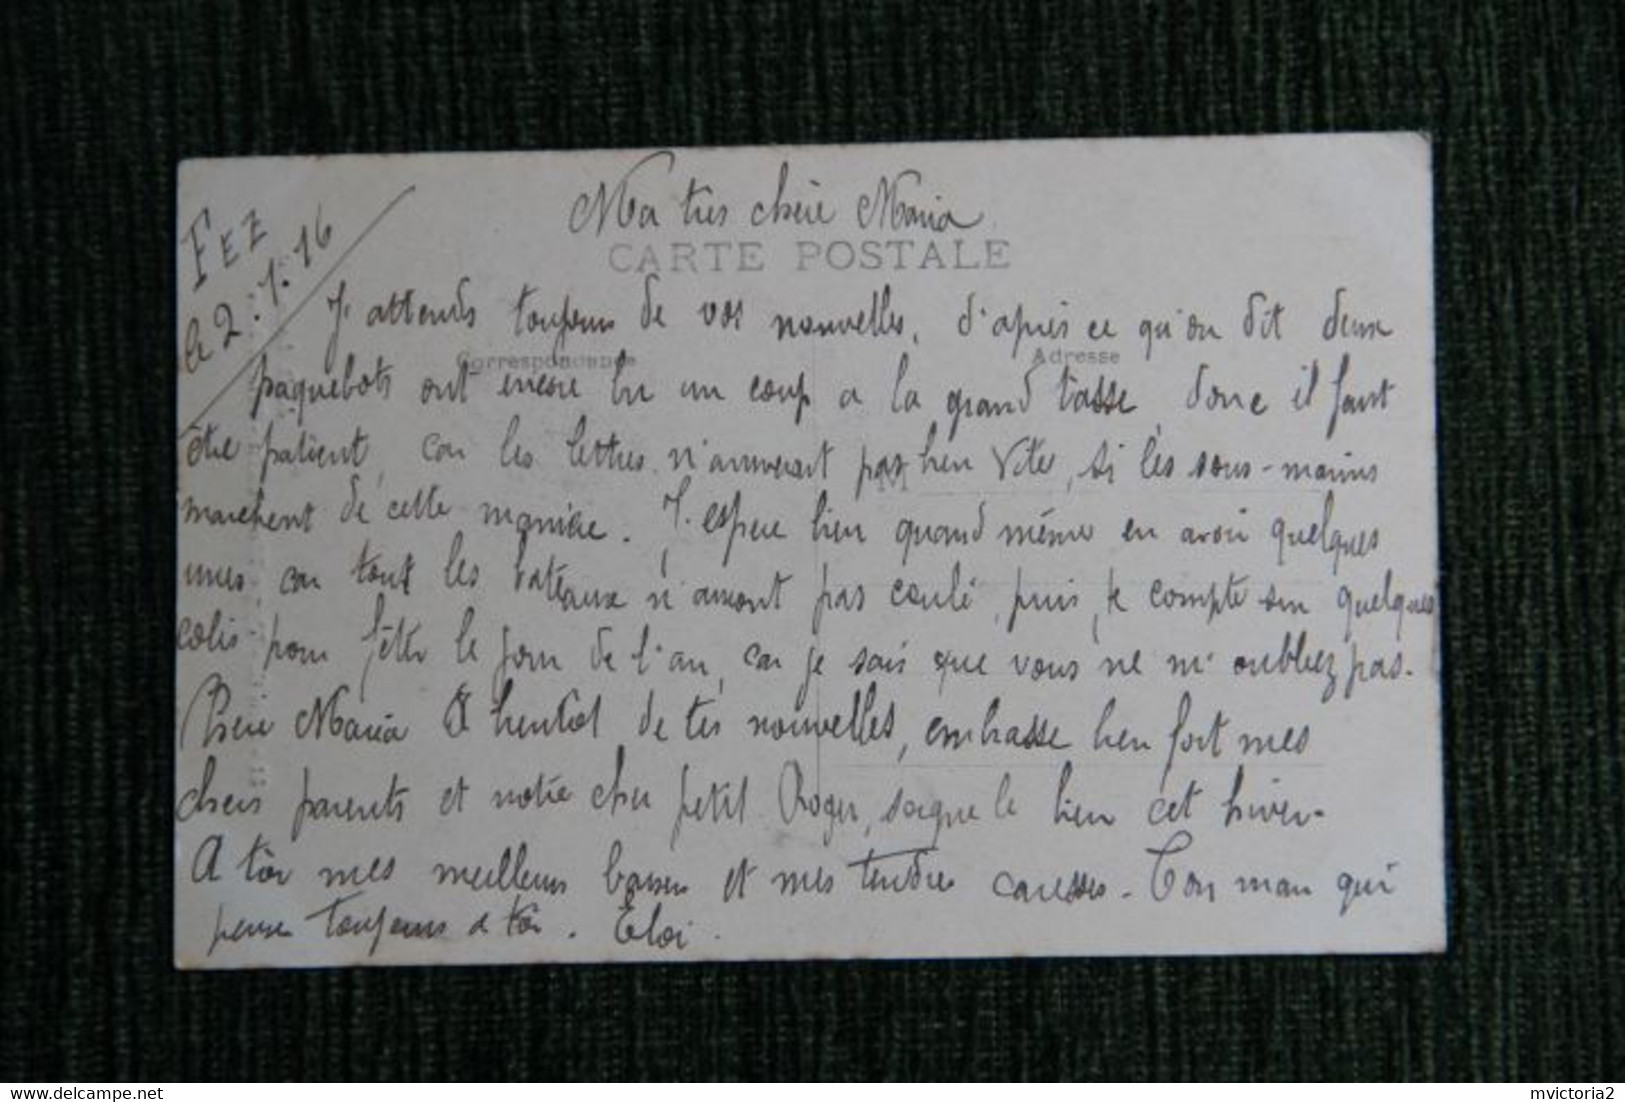 FEZ
le 2.1.16
Ma très chère Maria
CARTE POSTALE
J. attends toujours de vos nouvelles, d'apres ce qu'on dit deux
Correspondance
Adresse
paquebots ont encore bu un coup a la grand tasse, donc il faut
être patient, car les lettres n'arriverait pas bien vite, si les sous-marins
marchent de cette manière. J. espere bien quand même en avoir quelques
unes, car tout les bateaux n'auront pas coulé, puis, je compte sur quelques
colis pour fêter le jour de l'an, car je sais que vous ne m'oubliez pas.
Chere Maria à bientôt de tes nouvelles, embrasse bien fort mes
chers parents et notre cher petit Roger, soigne le bien cet hiver.
A toi mes meilleurs baisers et mes tendres caresses. Ton man qui
pense toujours a toi. Eloi.
delcampe.net
mvictoria2